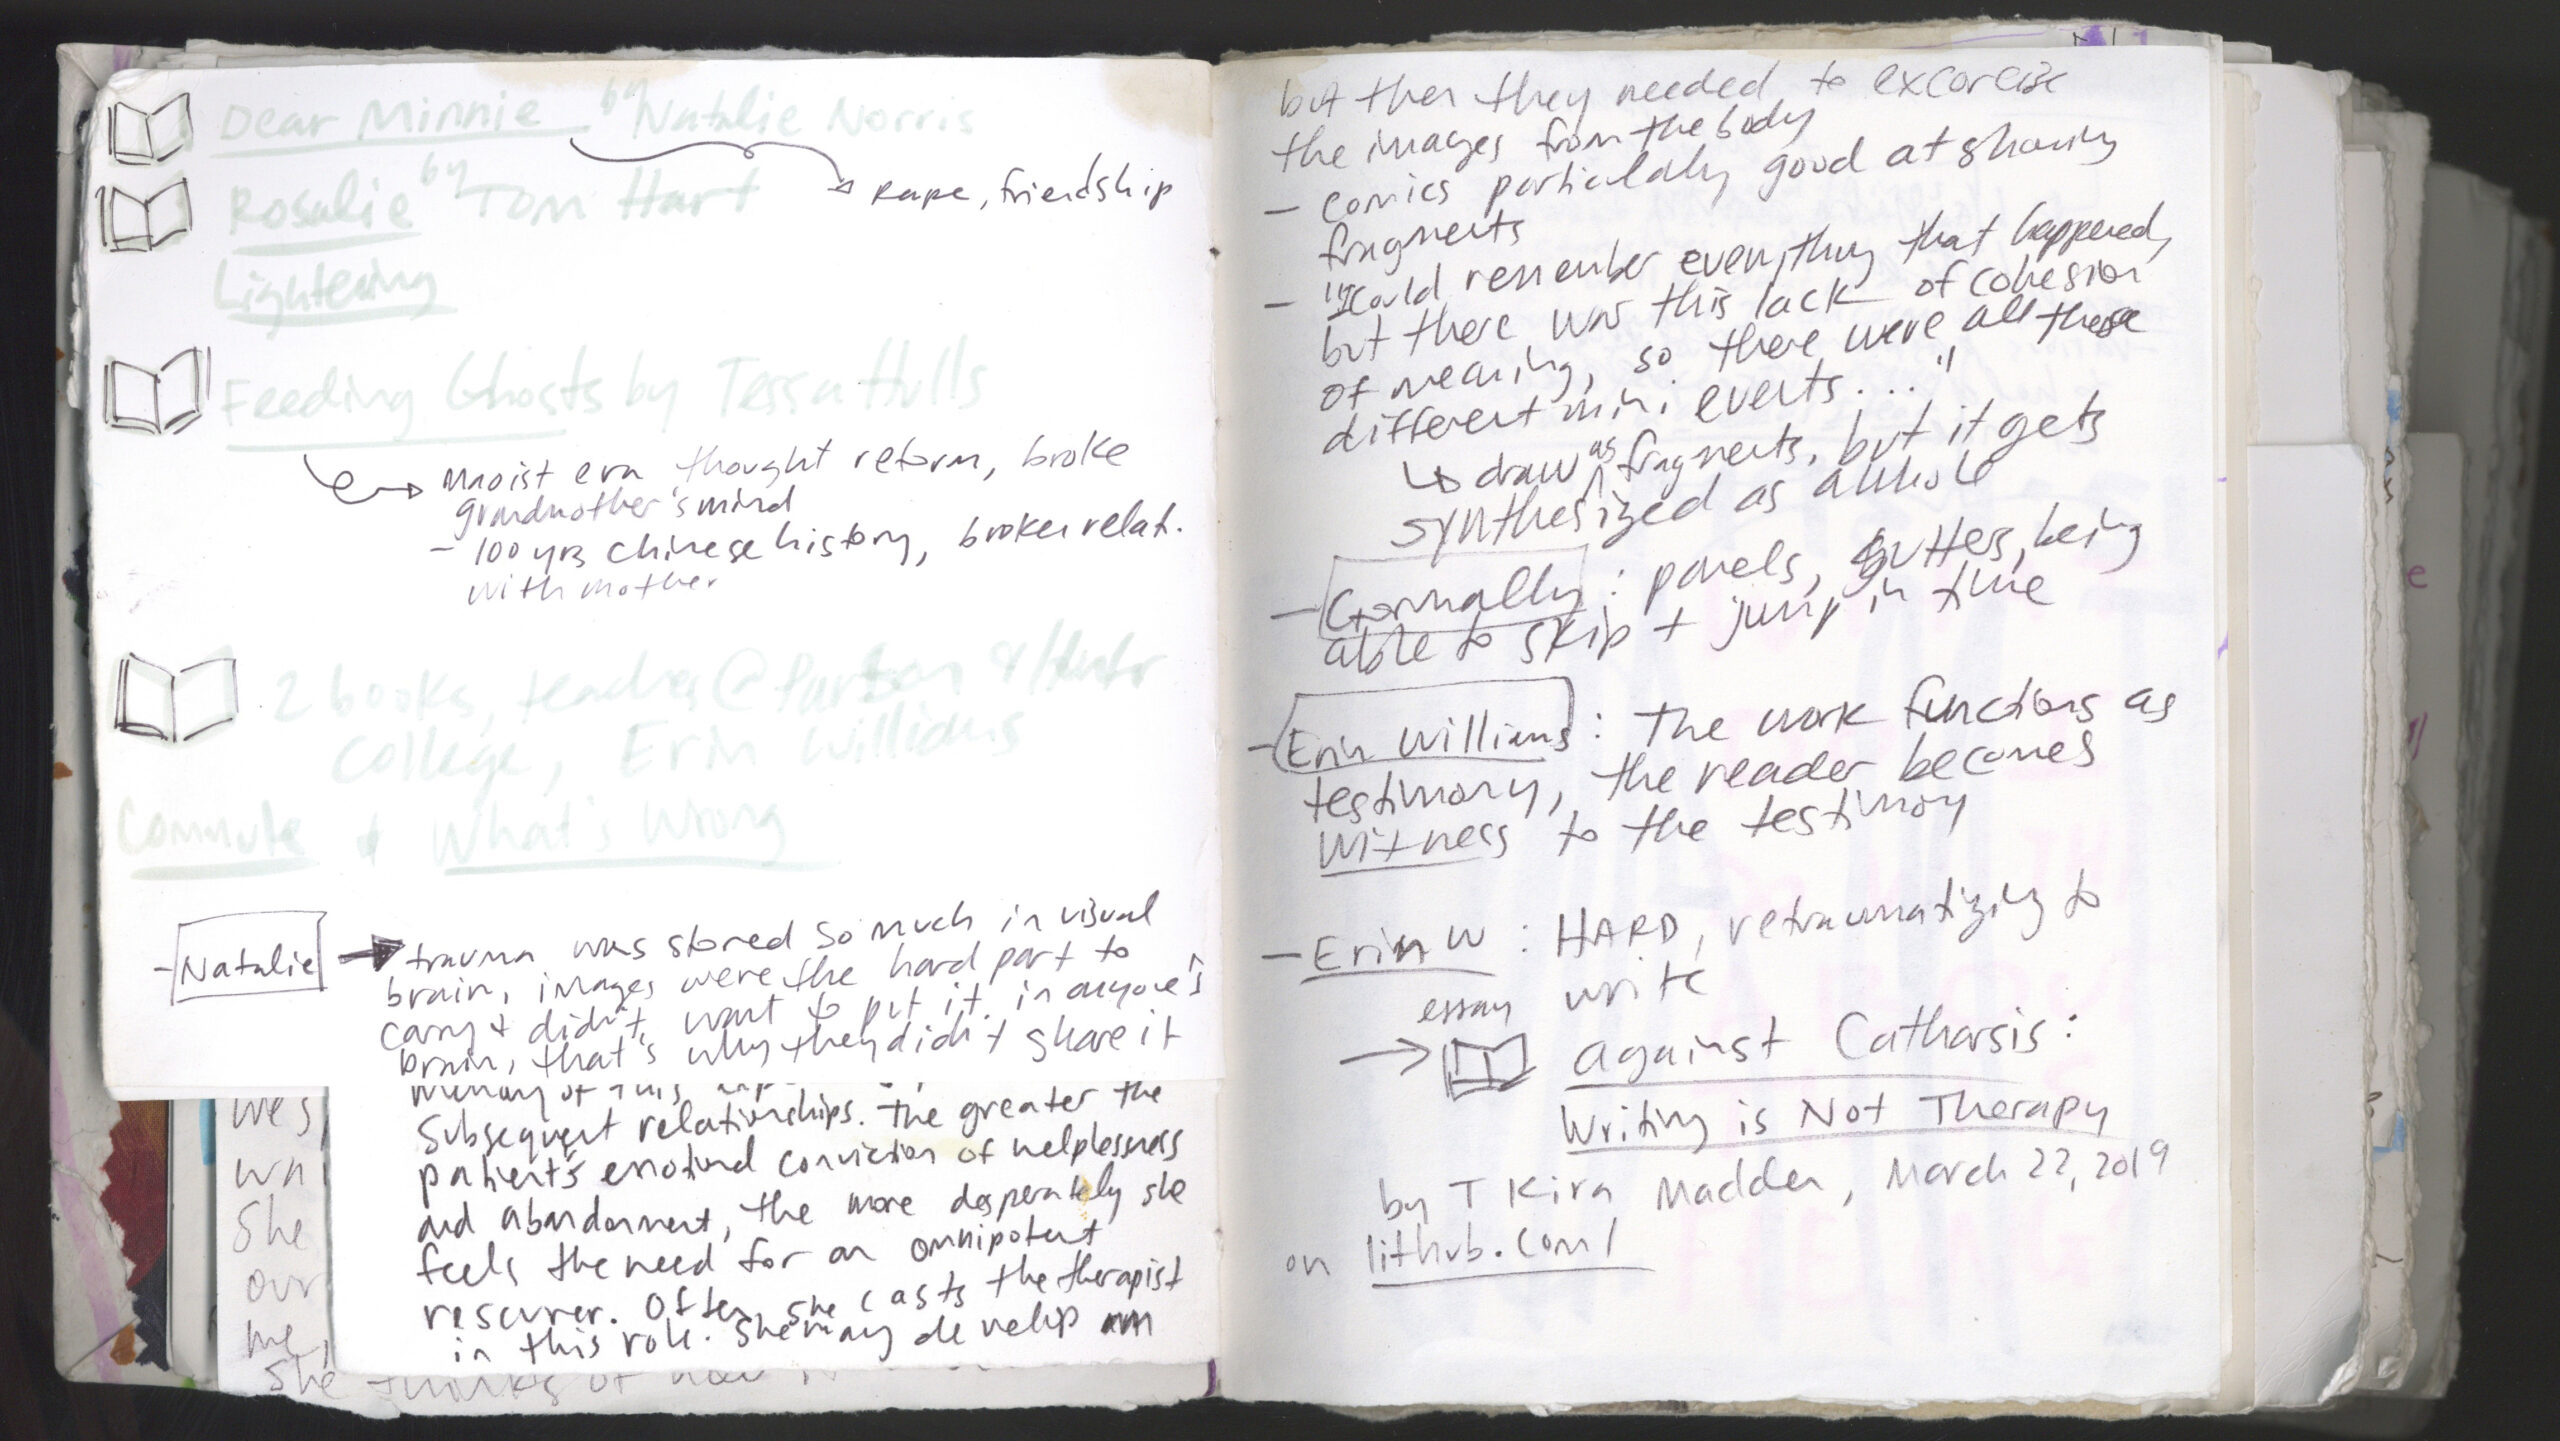 Dear Minnie by Natalie Norris
→ rape, friendship
Rosalie by Tom Hart
Lightening
Feeding Ghosts by Tessa Hulls
→ Maoist era thought reform, broke
grandmother's mind
- 100 yrs Chinese history, broken relat.
with mother
2 books, teaches @ Parsons &
College, Erin Williams
Commute + What's Wrong
- Natalie → trauma was stored so much in visual
brain, images were the hard part to
carry + didn't want to put it in anyone's
brain, that's why they didn't share it
memory of this
subsequent relationships. The greater the
patient's emotional conviction of helplessness
and abandonment, the more desperately she
feels the need for an omnipotent
rescurer. Often, she casts the therapist
in this role. She may develop
we
wa
She
our
me,
She thinks of how
but then they needed to excorcise
the images from the body
- comics particularly good at sharing
fragments
- "I could remember everything that happened,
but there was this lack of cohesion
of meaning, so there were all these
different mini events..."
↳ draw as fragments, but it gets
synthesized as a whole
- Formally: panels, gutters, being
able to skip + jump in time
- Erin Williams: The work functions as
testimony, the reader becomes
witness to the testimoy
- Erin W: HARD, retraumatizing to
write
essay
→ Against Catharsis:
Writing is Not Therapy
by T Kira Madden, March 22, 2019
on lithub.com/